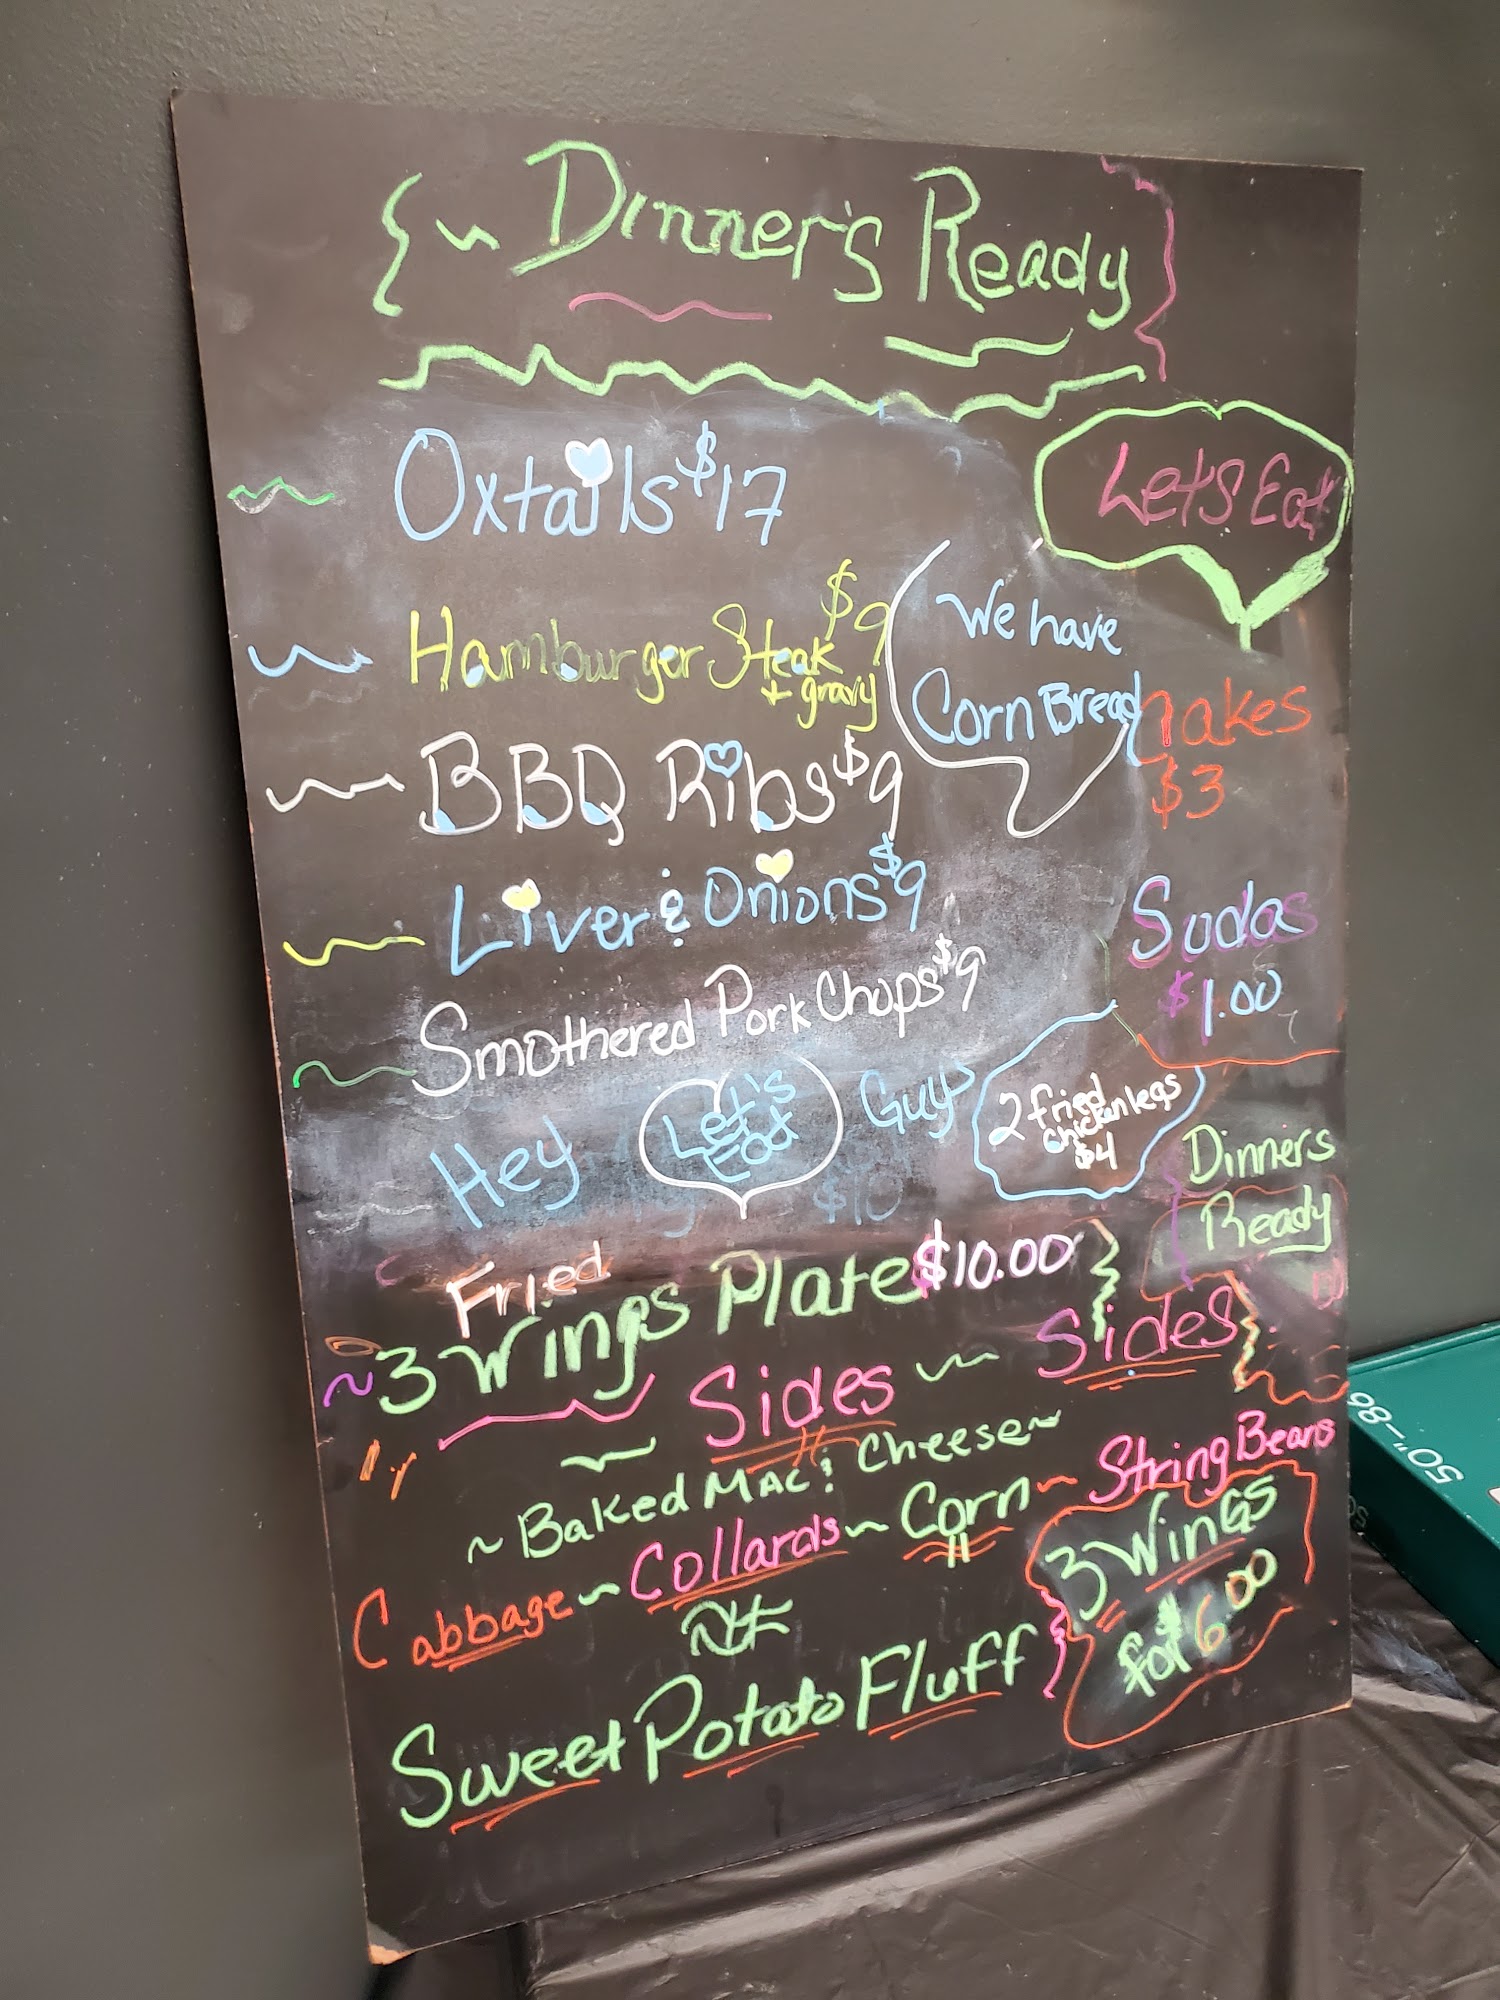 ~ Dinner's Ready
Let's Eat
Oxtails $17
Hamburger Steak $9
+ gravy
We have
Corn Bread
BBQ Ribs $9
$3
Liver & Onions $9
Sodas
$1.00
Smothered Pork Chops $9
Hey Let's Eat Guys
2 fried
chicken legs
$4
Dinners
Ready
$10
Fried
~ 3 Wings Plate $10.00
Sides ~ Sides
~ Baked Mac & Cheese ~
Cabbage ~ Collards ~ Corn ~ String Beans
3 Wings
for $6.00
Sweet Potato Fluff
50"-86